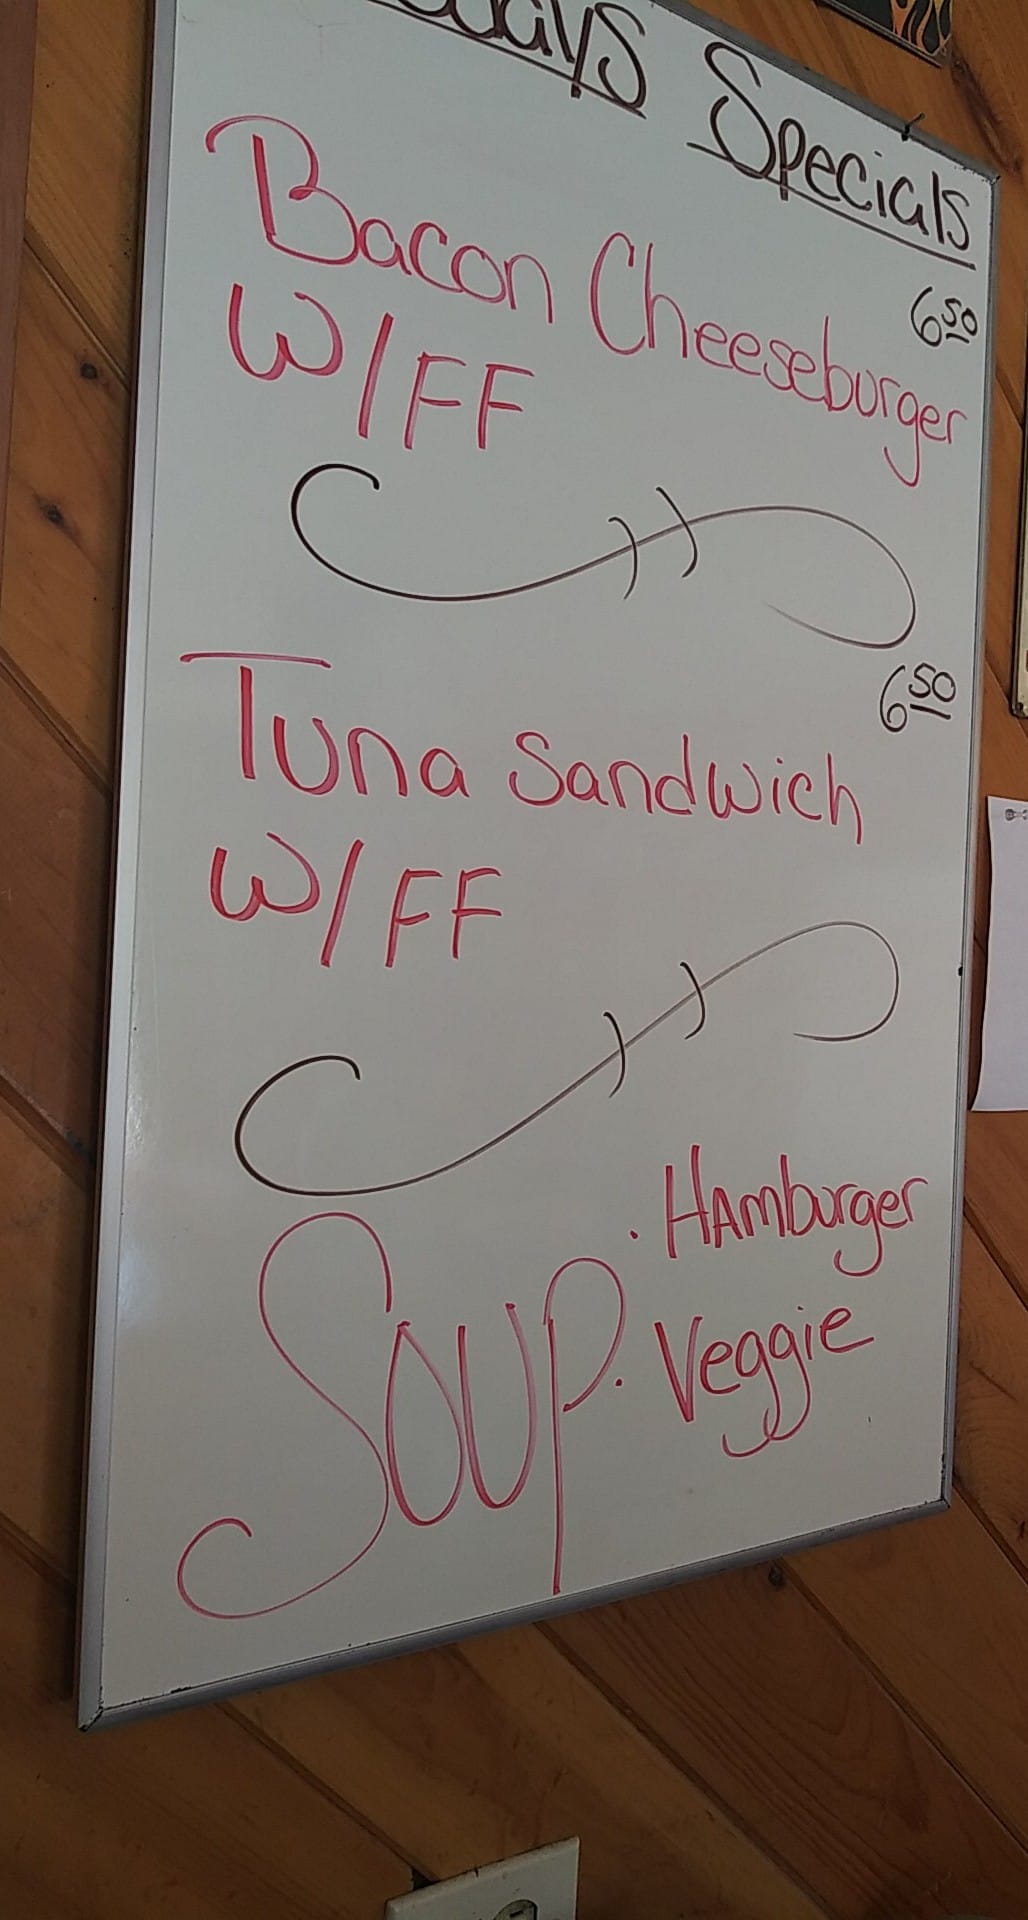 Todays Specials
6 50
Bacon Cheeseburger
W/FF
6 50
Tuna Sandwich
W/FF
SOUP
· HAmburger
· Veggie